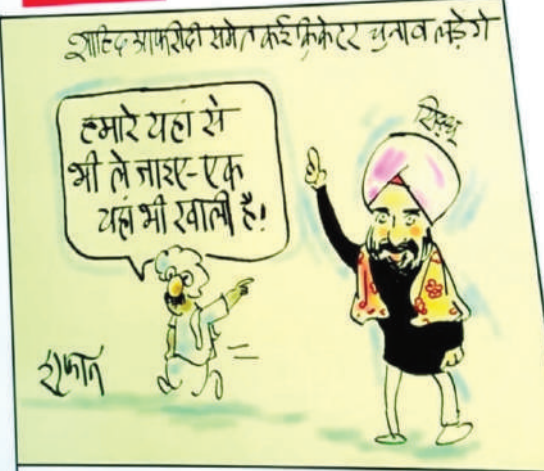 शाहिद आफरीदी समेत कई क्रिकेटर चुनाव लड़ेंगे
सिद्धू
हमारे यहां से
भी ले जाइए-एक
यहां भी खाली है!
इरफान